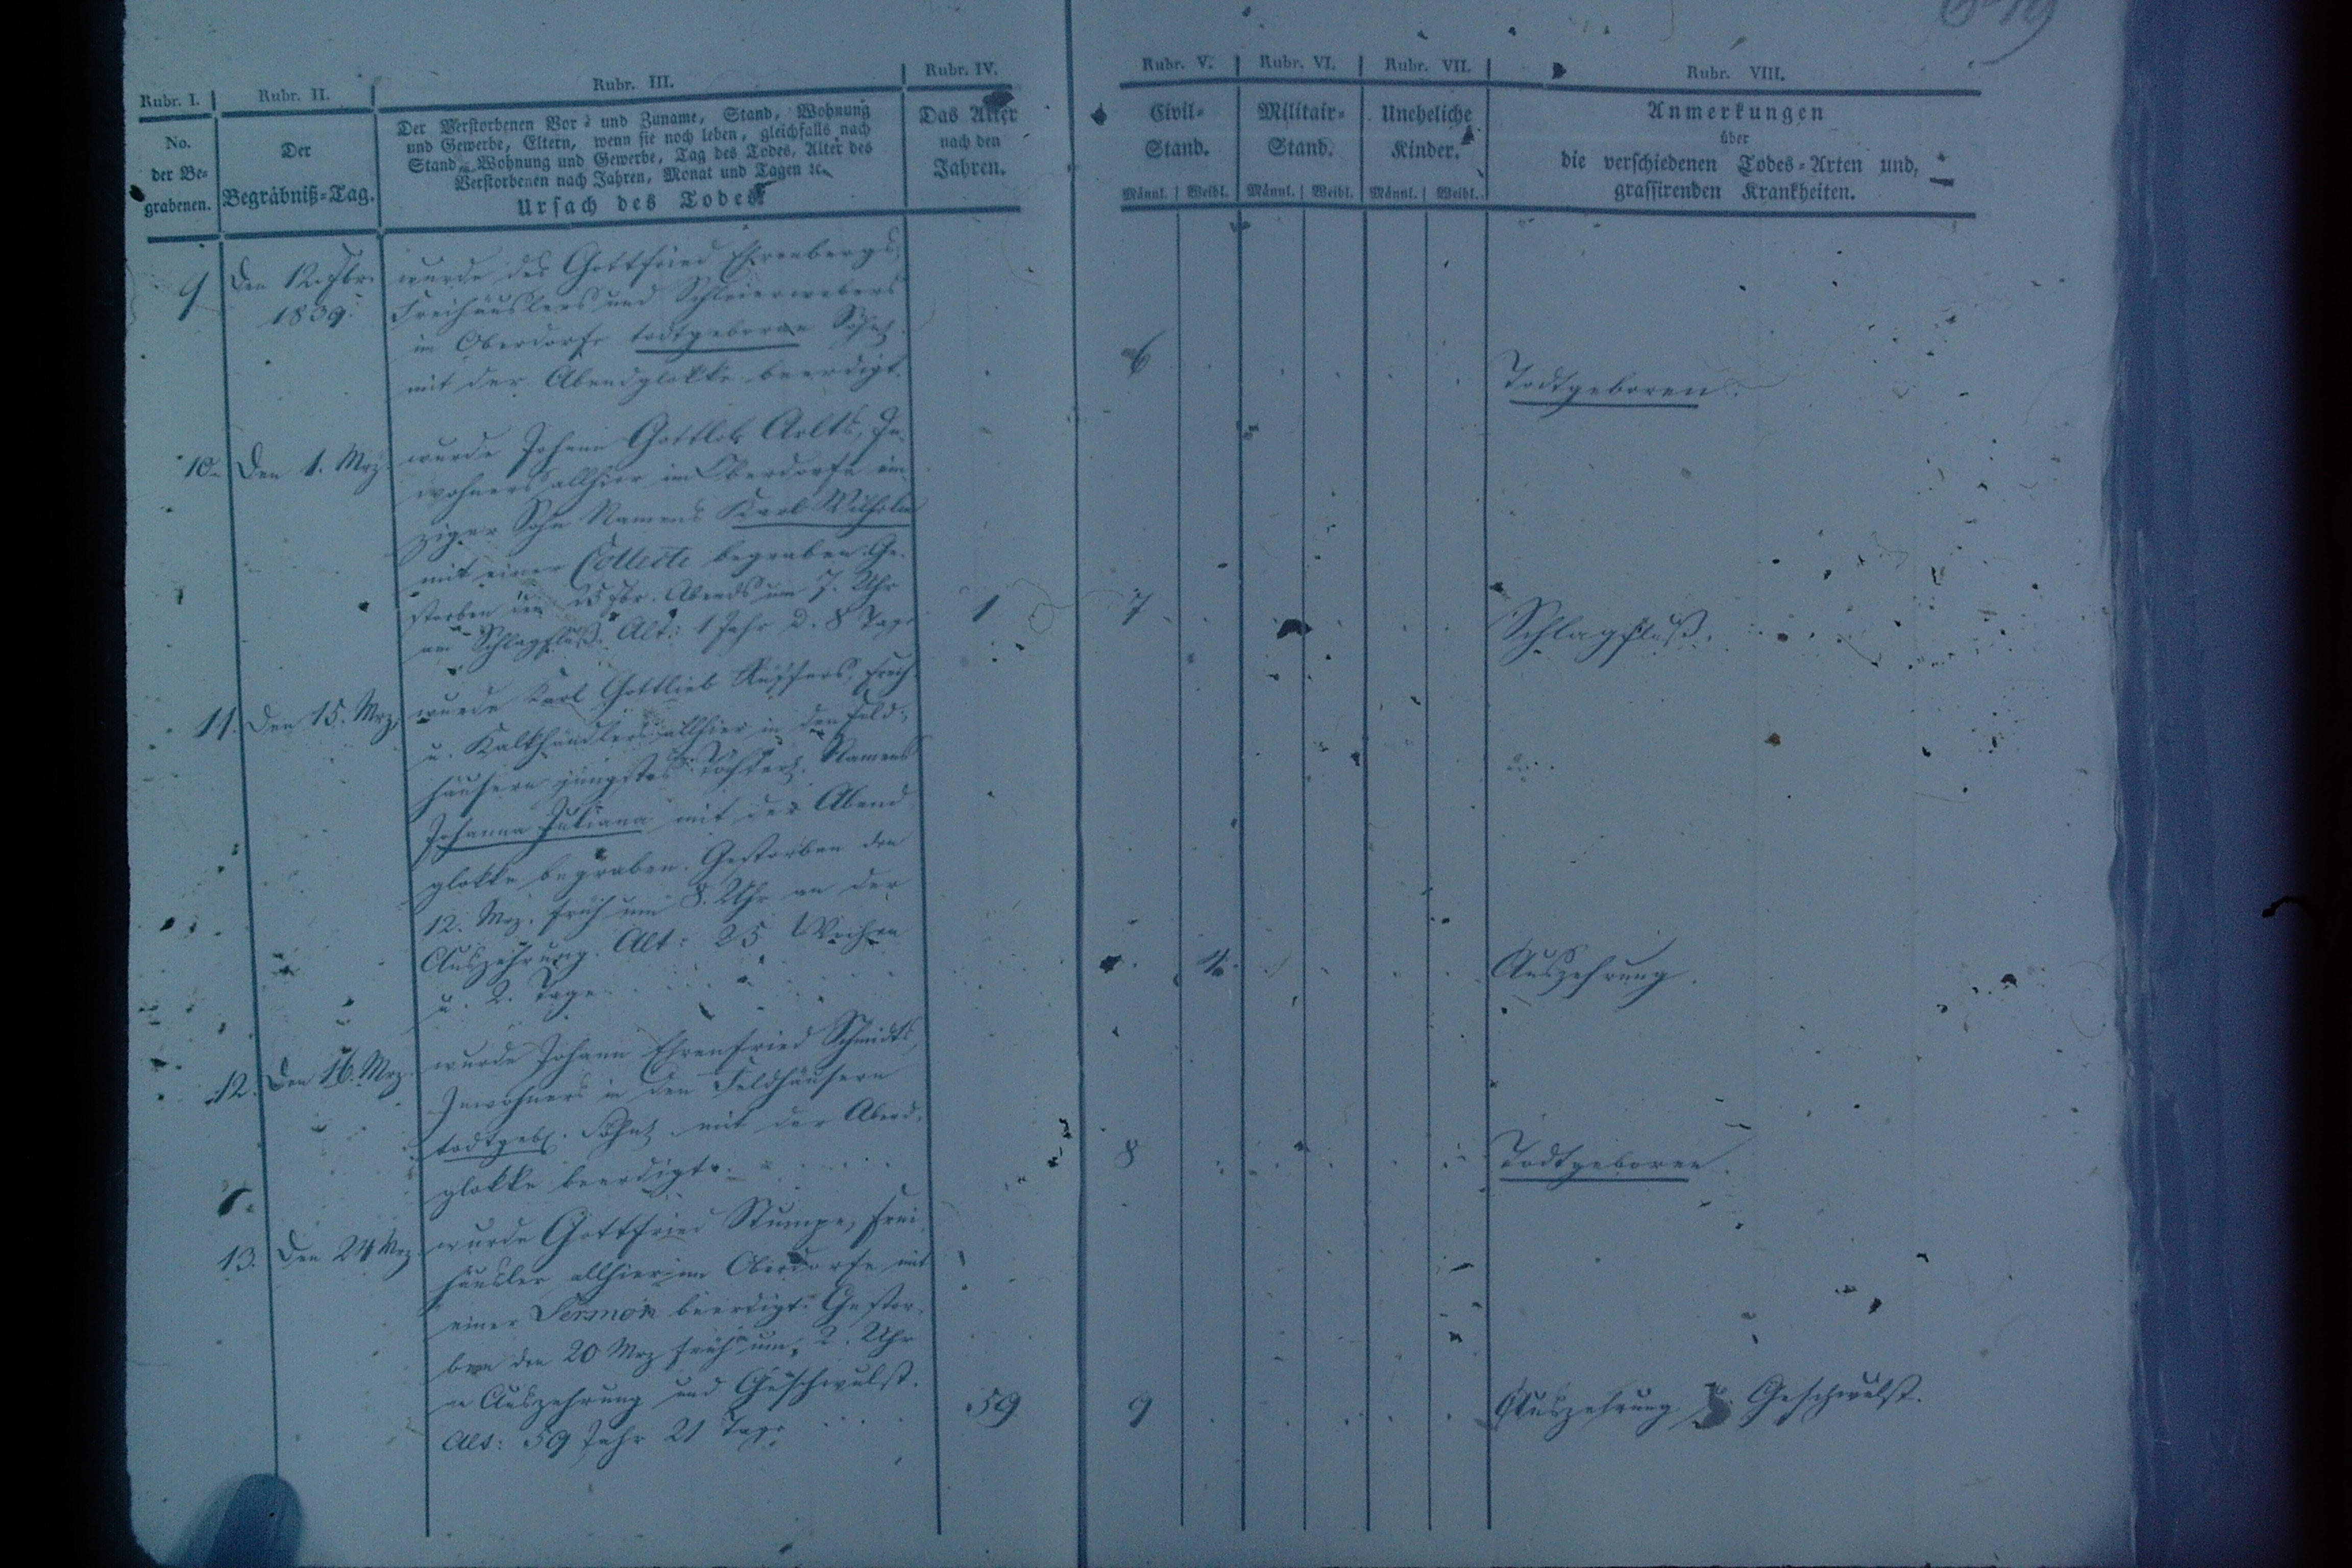 Rubr. I. Rubr. II. Rubr. III. Rubr. IV. Rubr. V. Rubr. VI. Rubr. VII. Rubr. VIII.
No.
der Be-
grabenen.
Der
Begräbniß-Tag.
Der Verstorbenen Vor- und Zuname, Stand, Wohnung
und Gewerbe, Eltern, wenn sie noch leben, gleichfalls nach
Stand, Wohnung und Gewerbe, Tag des Todes, Alter des
Verstorbenen nach Jahren, Monat und Tagen ꝛc.
Ursach des Todes
Das Alter
nach den
Jahren.
Civil-
Stand.
Männl. Weibl.
Militair-
Stand.
Männl. Weibl.
Uneheliche
Kinder.
Männl. Weibl.
Anmerkungen
über
die verschiedenen Todes-Arten und
grassirenden Krankheiten.
9 Den 12. Fbr. wurde des Gottfried Ehrenbergs,
1839. Freihäuslers und Schleierwebers
im Oberdorfe todtgeboren Söhnl.
mit der Abendglokke beerdigt.
6 Todtgeboren.
10. Den 1. Mrz. wurde Johann Gottlob Arlts, In-
wohners allhier im Oberdorfe ein-
ziger Sohn Namens Karl Wilhelm
mit einer Collecte begraben. Ge-
storben den 25 Fbr. Abends um 7. Uhr
am Schlagfluß. Alt: 1 Jahr 8 Tage
1 7 Schlagfluß.
11. Den 15. Mrz. wurde Karl Gottlieb
u. Kalkhändlers allhier in den Feld-
häusern jüngstes Töchterl. Namens
Johanna Juliana mit der Abend
glokke begraben. Gestorben den
12. Mrz. früh um 8. Uhr an der
Auszehrung. Alt: 25 Wochen
u. 2. Tage.
4. Auszehrung.
12. Den 16. Mrz. wurde Johann Ehrenfried Schmidts,
Inwohners in den Feldhäusern
todtgeb. Söhnl. mit der Abend-
glokke beerdigt.
8 Todtgeboren.
13. Den 24 Mrz. wurde Gottfried Stumpe, Frei-
häusler allhier im Oberdorfe mit
einer Sermon beerdigt. Gestor-
ben den 20 Mrz früh um 2. Uhr
an Auszehrung und Geschwulst.
Alt: 59 Jahr 21 Tage
59 9 Auszehrung u. Geschwulst.